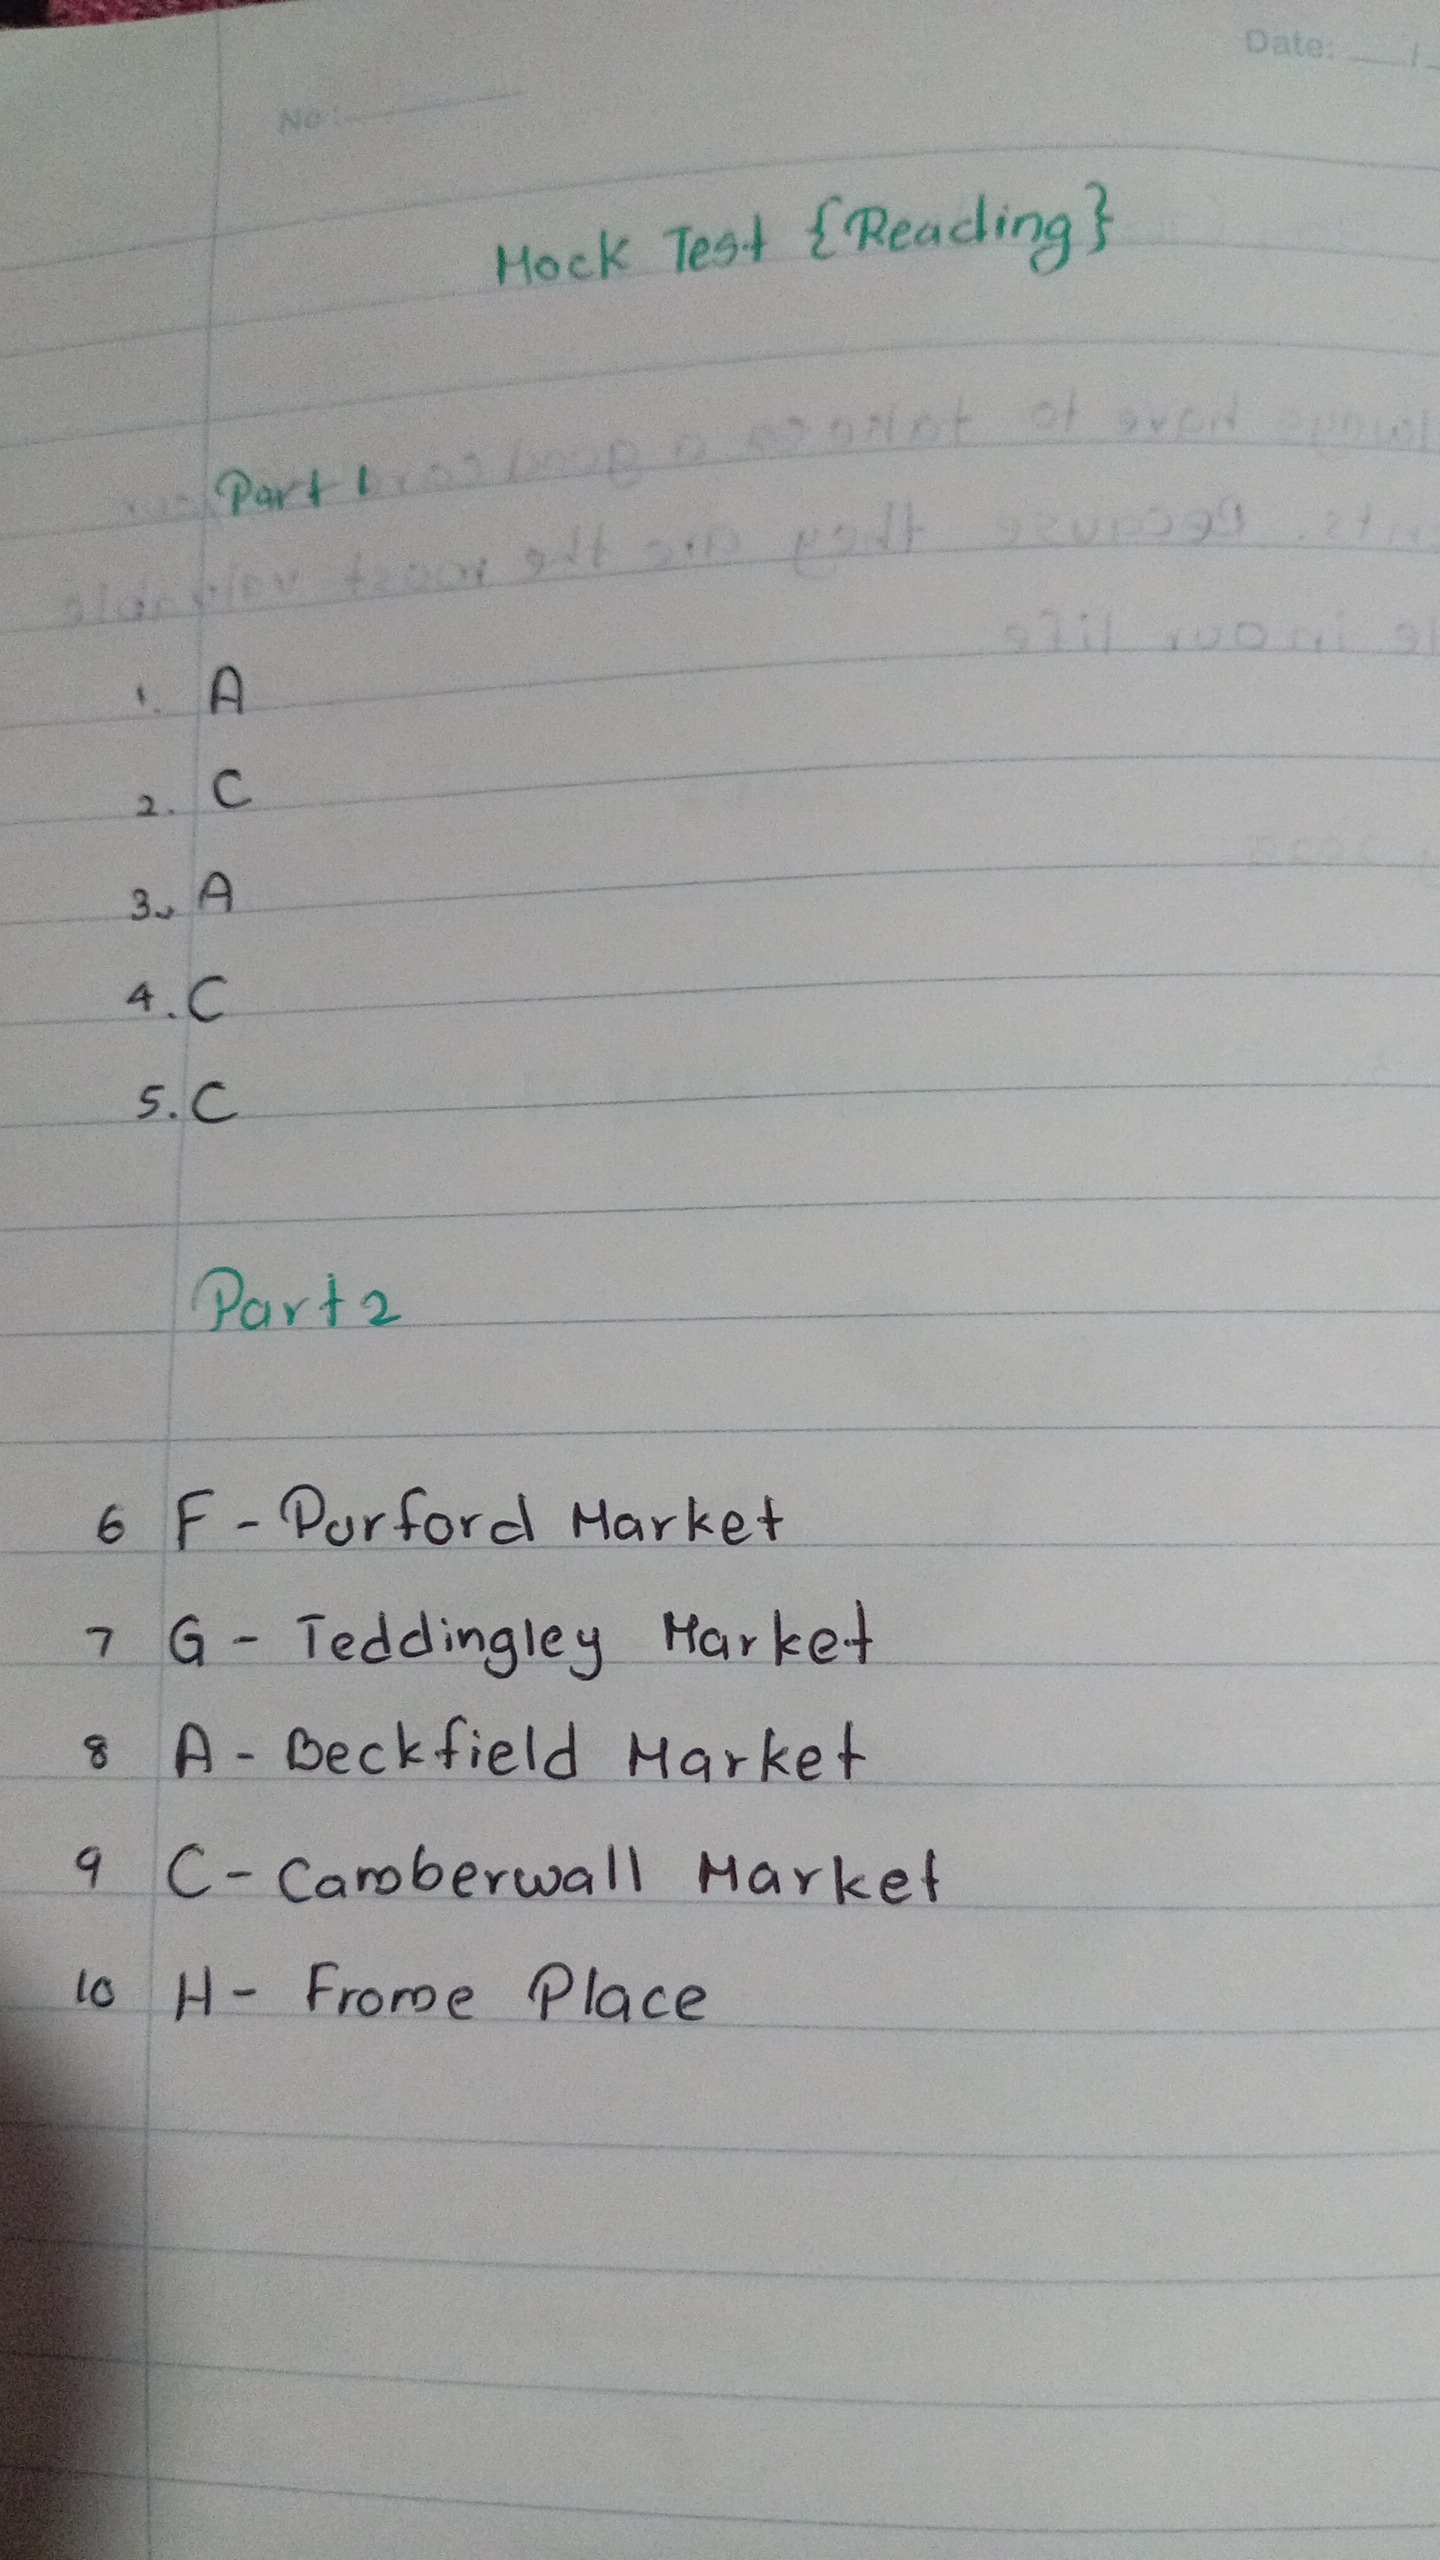 Date:
No:
Mock Test {Reading}
Part 1
1. A
2. C
3. A
4. C
5. C
Part 2
6 F - Purford Market
7 G - Teddingley Market
8 A - Beckfield Market
9 C - Camberwall Market
10 H - Frome Place